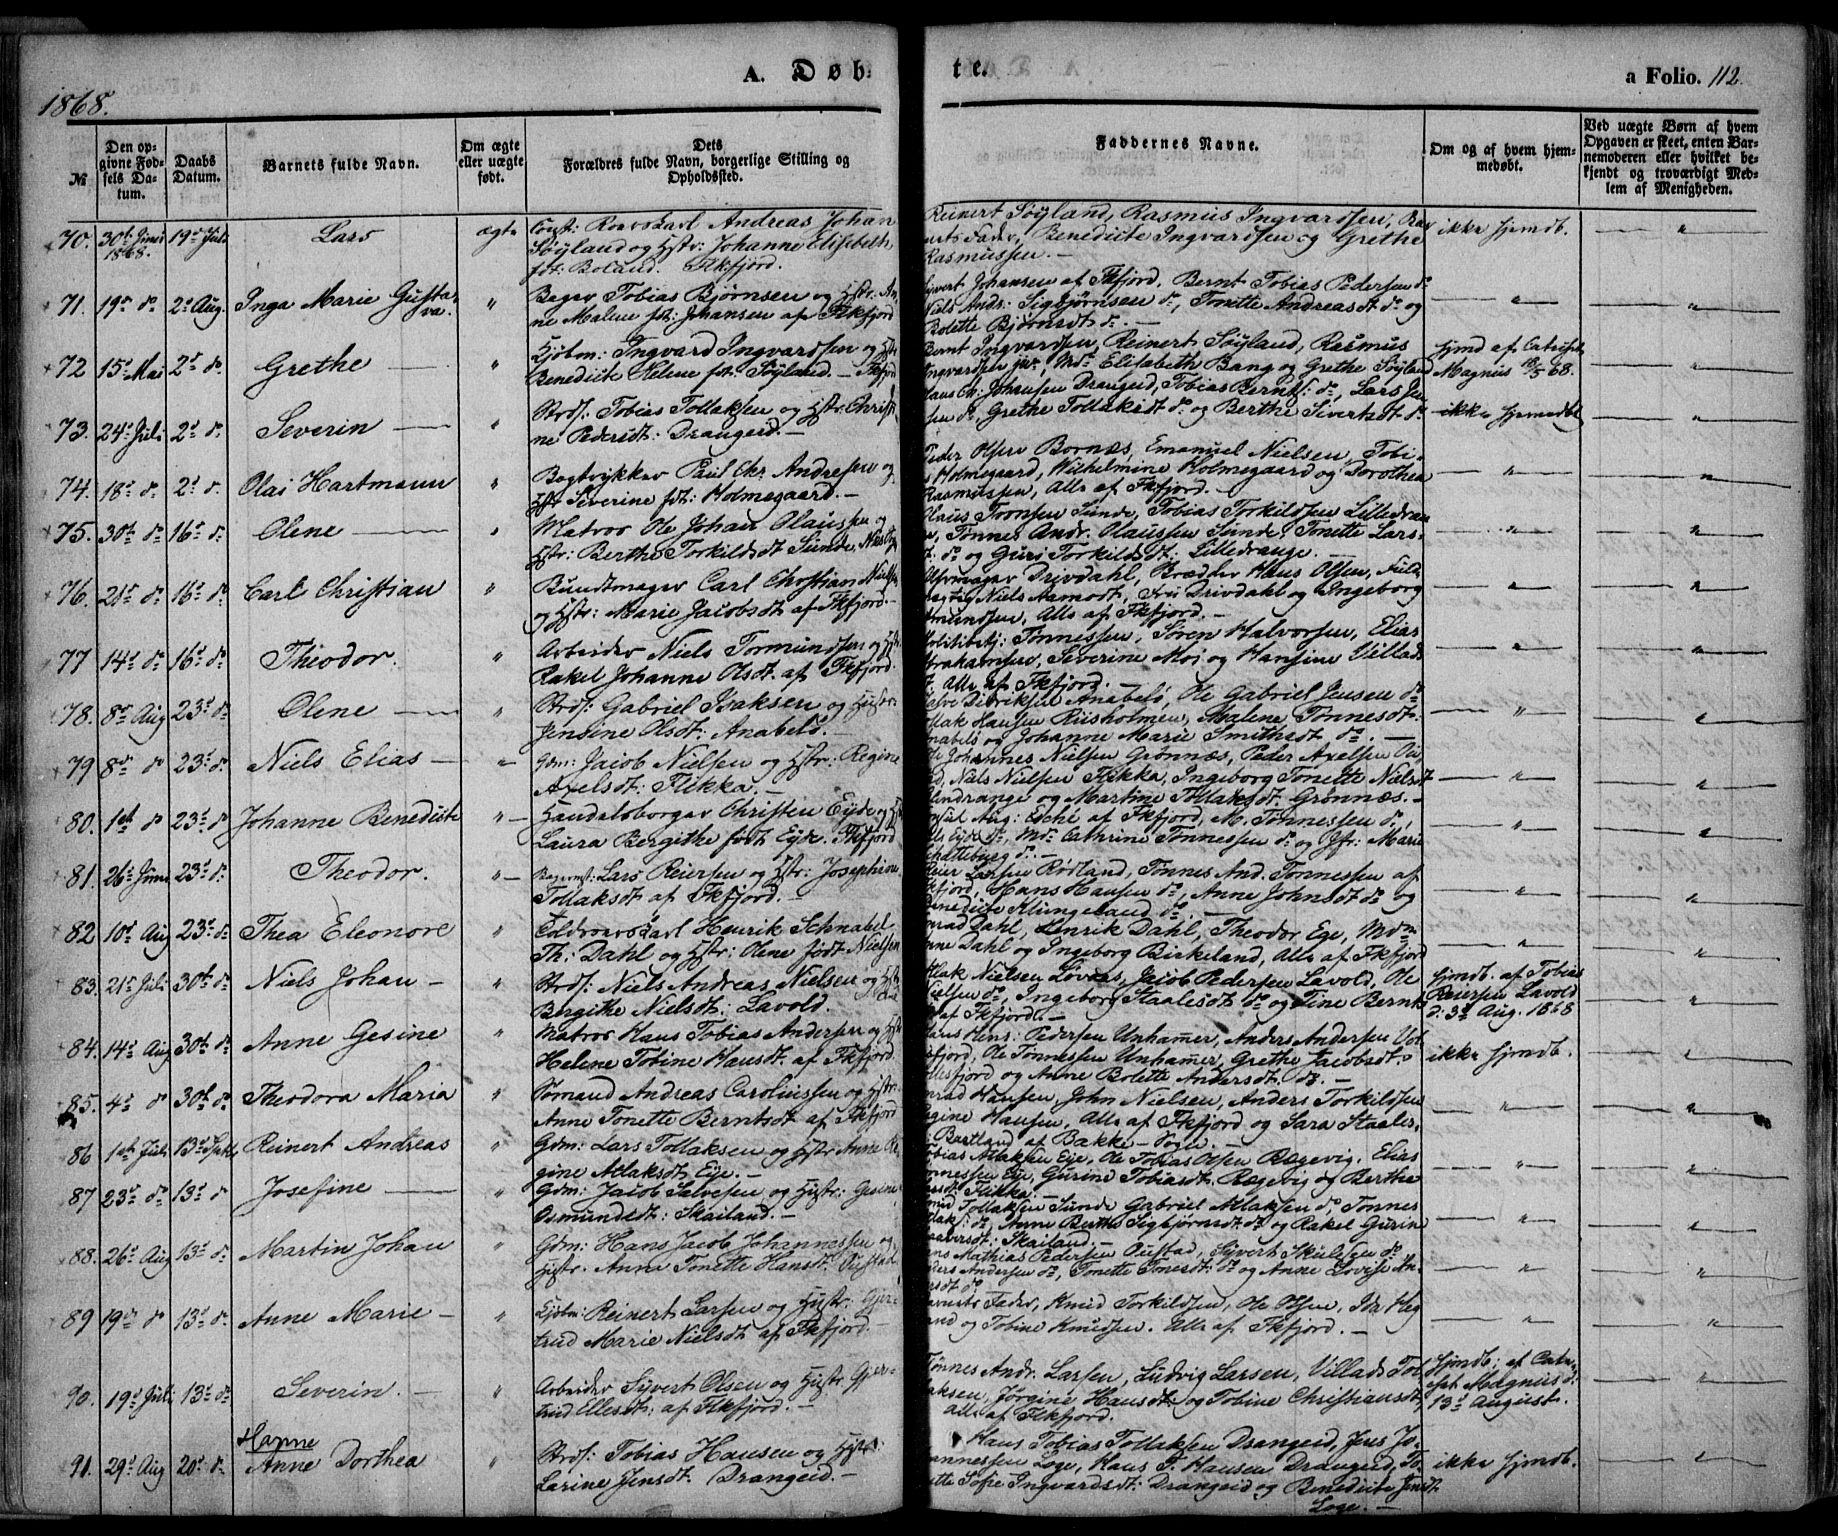 1868.
A. Døb
te.
a Folio. 112.
№
Den opgivne Fødsels Datum.
Daabs Datum.
Barnets fulde Navn.
Om ægte eller uægte født.
Dets Forældres fulde Navn, borgerlige Stilling og Opholdssted.
Faddernes Navne.
Om og af hvem hjemmedøbt.
Ved uægte Børn af hvem Opgaven er skeet, enten Barnemoderen eller hvilket bekjendt og troværdigt Medlem af Menigheden.
70. 30te Juni 1868. 19de Juli Lars ægte Const: Roarskarl Andreas Johan
Søyland og Hstr: Johanne Elisabeth
fdt: Boland. Flkfjord.
Reinert Søyland, Rasmus Ingvardsen, Bar
nets Fader, Benedicte Ingvardsen og Grethe
Rasmussen. —
ikke hjemdb.
71. 19de do 2de Aug. Inga Marie Gustava. " Bager Tobias Bjørnsen og Hstr: An
ne Malene fdt: Johansen af Flkfjord
Johansen af Flkfjord, Bernt Tobias Pedersen do
Niels Ands: Sigbjørnsen do, Tonette Andreasdt do og
Bolette Bjørnsdt do. —
72 15de Mai 2de do Grethe — " Kjøbm: Ingvard Ingvardsen og Hstr
Benedicte Helene fdt: Søyland. — Flkfjord
Bernt Ingvardsen, Reinert Søyland, Rasmus
Ingvardsen jnr, Md: Elisabeth Bang og Grethe Søyland
hjmd af
Magnus 18/5 68.
73. 24de Juli 2de do Severin — " Strds: Tobias Tollaksen og Hstr: Christi
ne Pedersdt: Drangeid. —
Hans Ch: Johansen Drangeid, Tobias Bernts: do, Lars Jen
sen do, Grethe Tollaksdt do og Berthe Sivertsdt do
ikke hjemdbt
74. 18de do 2de do Olai Hartmann " Bogtrykker Paul Chr. Andresen og
Hstr Severine fdt: Holmegaard. —
Peder Olsen Bornæs, Emanuel Nielsen, Tobi
Holmegaard, Wilhelmine Holmegaard og Dorothea
Rasmussen, Alle af Flkfjord. —
75. 30te do 16de do Olene — " Matros Ole Johan Olaussen og
Hstr: Berthe Torkildsdt Sunde, Nes Sogn
Olaus Tronsen Sunde, Tobias Torkildsen Lilledran
Tønnes Andr. Olaussen Sunde, Tonette Lars
dt. do og Guri Torkildsdt: Lilledrange. —
76. 21de do 16de do Carl Christian " Bundtmager Carl Christian Nielsen
og Hstr: Marie Jacobsdt af Flkfjord. —
Drivdahl, Hans Olsen, Fuld
mægtig Niels Aamodt, Fru Drivdahl og Ingeborg
Amundsen, Alle af Flkfjord. —
77 14de do 16de do Theodor. " Arbeider Niels Tormundsen og Hstr
Rakel Johanne Olsdt. af Flkfjord.
Politibetj: Tønnessen, Søren Halvorsen, Elias
Abrahamsen, Severine Moi og Hansine Villads
dt, Alle af Flkfjord. —
78. 8de Aug 23de do Olene — " Strds: Gabriel Isaksen og Hustr:
Jensine Olsdt: Anabelø. —
Didriksen Anabelø, Ole Gabriel Jensen do
Hansen Riisholmen, Malene Tønnesdt:
Anabelø og Johanne Marie Smithsdt do. —
79 8de do 23de do Niels Elias — " Gdm: Jacob Nielsen og Hstr: Regine
Axelsdt: Flikka. —
Johannes Nielsen Grønnæs, Peder Axelsen
Niels Nielsen Flikka, Ingeborg Tonette Nielsdt
og Martine Tollaksdt. Grønnæs. —
80. 1ste do 23de do Johanne Benedicte " Handelsborger Christen Eyde og Hstr
Laura Bergithe født Eyde. Flkfjord
Aug: af Flkfjord, M. Tønnessen do,
Eyde do, Md: Cathrine Tønnessen do og Jfr: Marie
do. —
81. 26de Juni 23de do Theodor. " Bagermst: Lars Reiersen og Hstr: Josephine
Tollaksdt af Flkfjord. —
Reier Larsen Rødland, Tønnes And. Tønnessen af
Flkfjord, Hans Hansen do, Anne Johnsdt do og
Benedicte Klungeland do. —
82 10de Aug 23de do Thea Eleonore " Toldroerskarl Henrik Schnabel
Th: Dahl og Hstr: Olene født Nielsen
Dahl, Henrik Dahl, Theodor Ege, Mdm
Dahl og Ingeborg Birkeland, Alle af Flkfjord
83. 21de Juli 30te do Niels Johan — " Strds: Niels Andreas Nielsen og Hstr
Bergithe Nielsdt: Lavold.
Nielsen Løvaas, Jacob Pedersen Lavold, Ole
Nielsen do, Ingeborg Staalesdt do og Tine Bernts
af Flkfjord. —
hjmdb. af Tobias
Reiersen Lavold
d: 3de Aug. 1868
84. 14de Aug 30te do Anne Gesine " Matros Hans Tobias Andersen og Hstr
Helene Tobine Hansdt. af Flkfjord.
Hans Hens: Pedersen Unhammer, Anders Andersen
Ole Tønnessen Unhammer, Grethe Jacobsdt
og Anne Bolette Andersdt. do. —
ikke hjmdb.
85. 4de do 30te do Theodora Maria " Sømand Andreas Caroliussen og Hstr:
Anne Tonette Berntsdt af Flkfjord
Hansen, John Nielsen, Anders Torkildsen
Hansen, Alle af Flkfjord og Sara Staales
Bartland af Bakke-Sogn. —
86 1ste Juli 13de Septbr Reinert Andreas " Gdm: Lars Tollaksen og Hstr Anne Re
gine Atlaksdt Eye. —
Tobias Atlaksen Eye, Ole Tobias Olsen Rægevig, Elias
Tønnessen Eye, Gurine Tobiasdt. Rægevig og Berthe
Flikka. —
87 23de do 13de do Josefine — " Gdm: Jacob Salvesen og Hustr: Gesine
Osmundsdt: Skailand. —
Tollaksen Sunde, Gabriel Atlaksen do, Tønnes
do, Anne Berthe Sigbjørnsdt do og Rakel Gurine
Skailand. —
88. 26de Aug 13de do Martin Johan " Gdm: Hans Jacob Johannessen og
Hustr. Anne Tonette Hansdt. Oustad
Mathias Pedersen Oustad, Syvert Skulesen do
Anders Andersen do, Tonette Tonesdt: do og Anne Lovise An
dersdt do
89 19de do 13de do Anne Marie — " Kjøbm: Reinert Larsen og Hustr: Gjer
trud Marie Nielsdt af Flkfjord. —
Barnets Fader, Knud Torkildsen, Ole Olsen, Ida Heg
land og Tobine Knudsen. Alle af Flkfjord. —
90. 19de Juli 13de do Severin. — " Arbeider Syvert Olsen og Hustr Gjer
trud Ellesdt: af Flkfjord. —
Tønnes Andr. Larsen, Ludvig Larsen, Villads Tol
laksen, Jørgine Hansdt og Tobine Christiansdt,
alle af Flkfjord.
hjmdb: af
Magnus d:
13de August.
91. 29de Aug 20de do Hanne
Anne Dorthea " Strds: Tobias Hansen og Hstr:
Larine Jensdt: Drangeid. —
Hans Tobias Tollaksen Drangeid, Jens Jo
hannessen Loge, Hans T. Hansen Drangeid, To
nette Sofie Ingvardsdt: Drangeid og Benedicte Jensdt
Loge. —
ikke hjmdb.